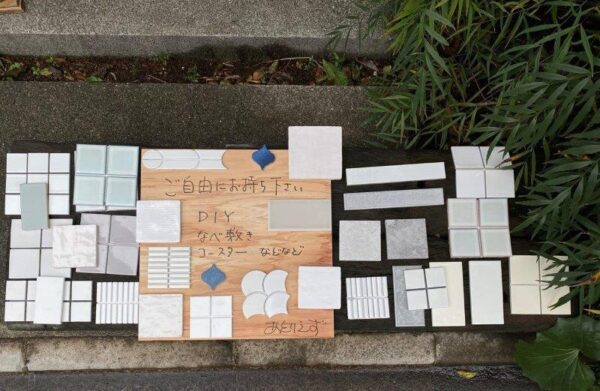 ご自由にお持ち下さい
DIY
なべ敷き
コースター などなど
あとりえず